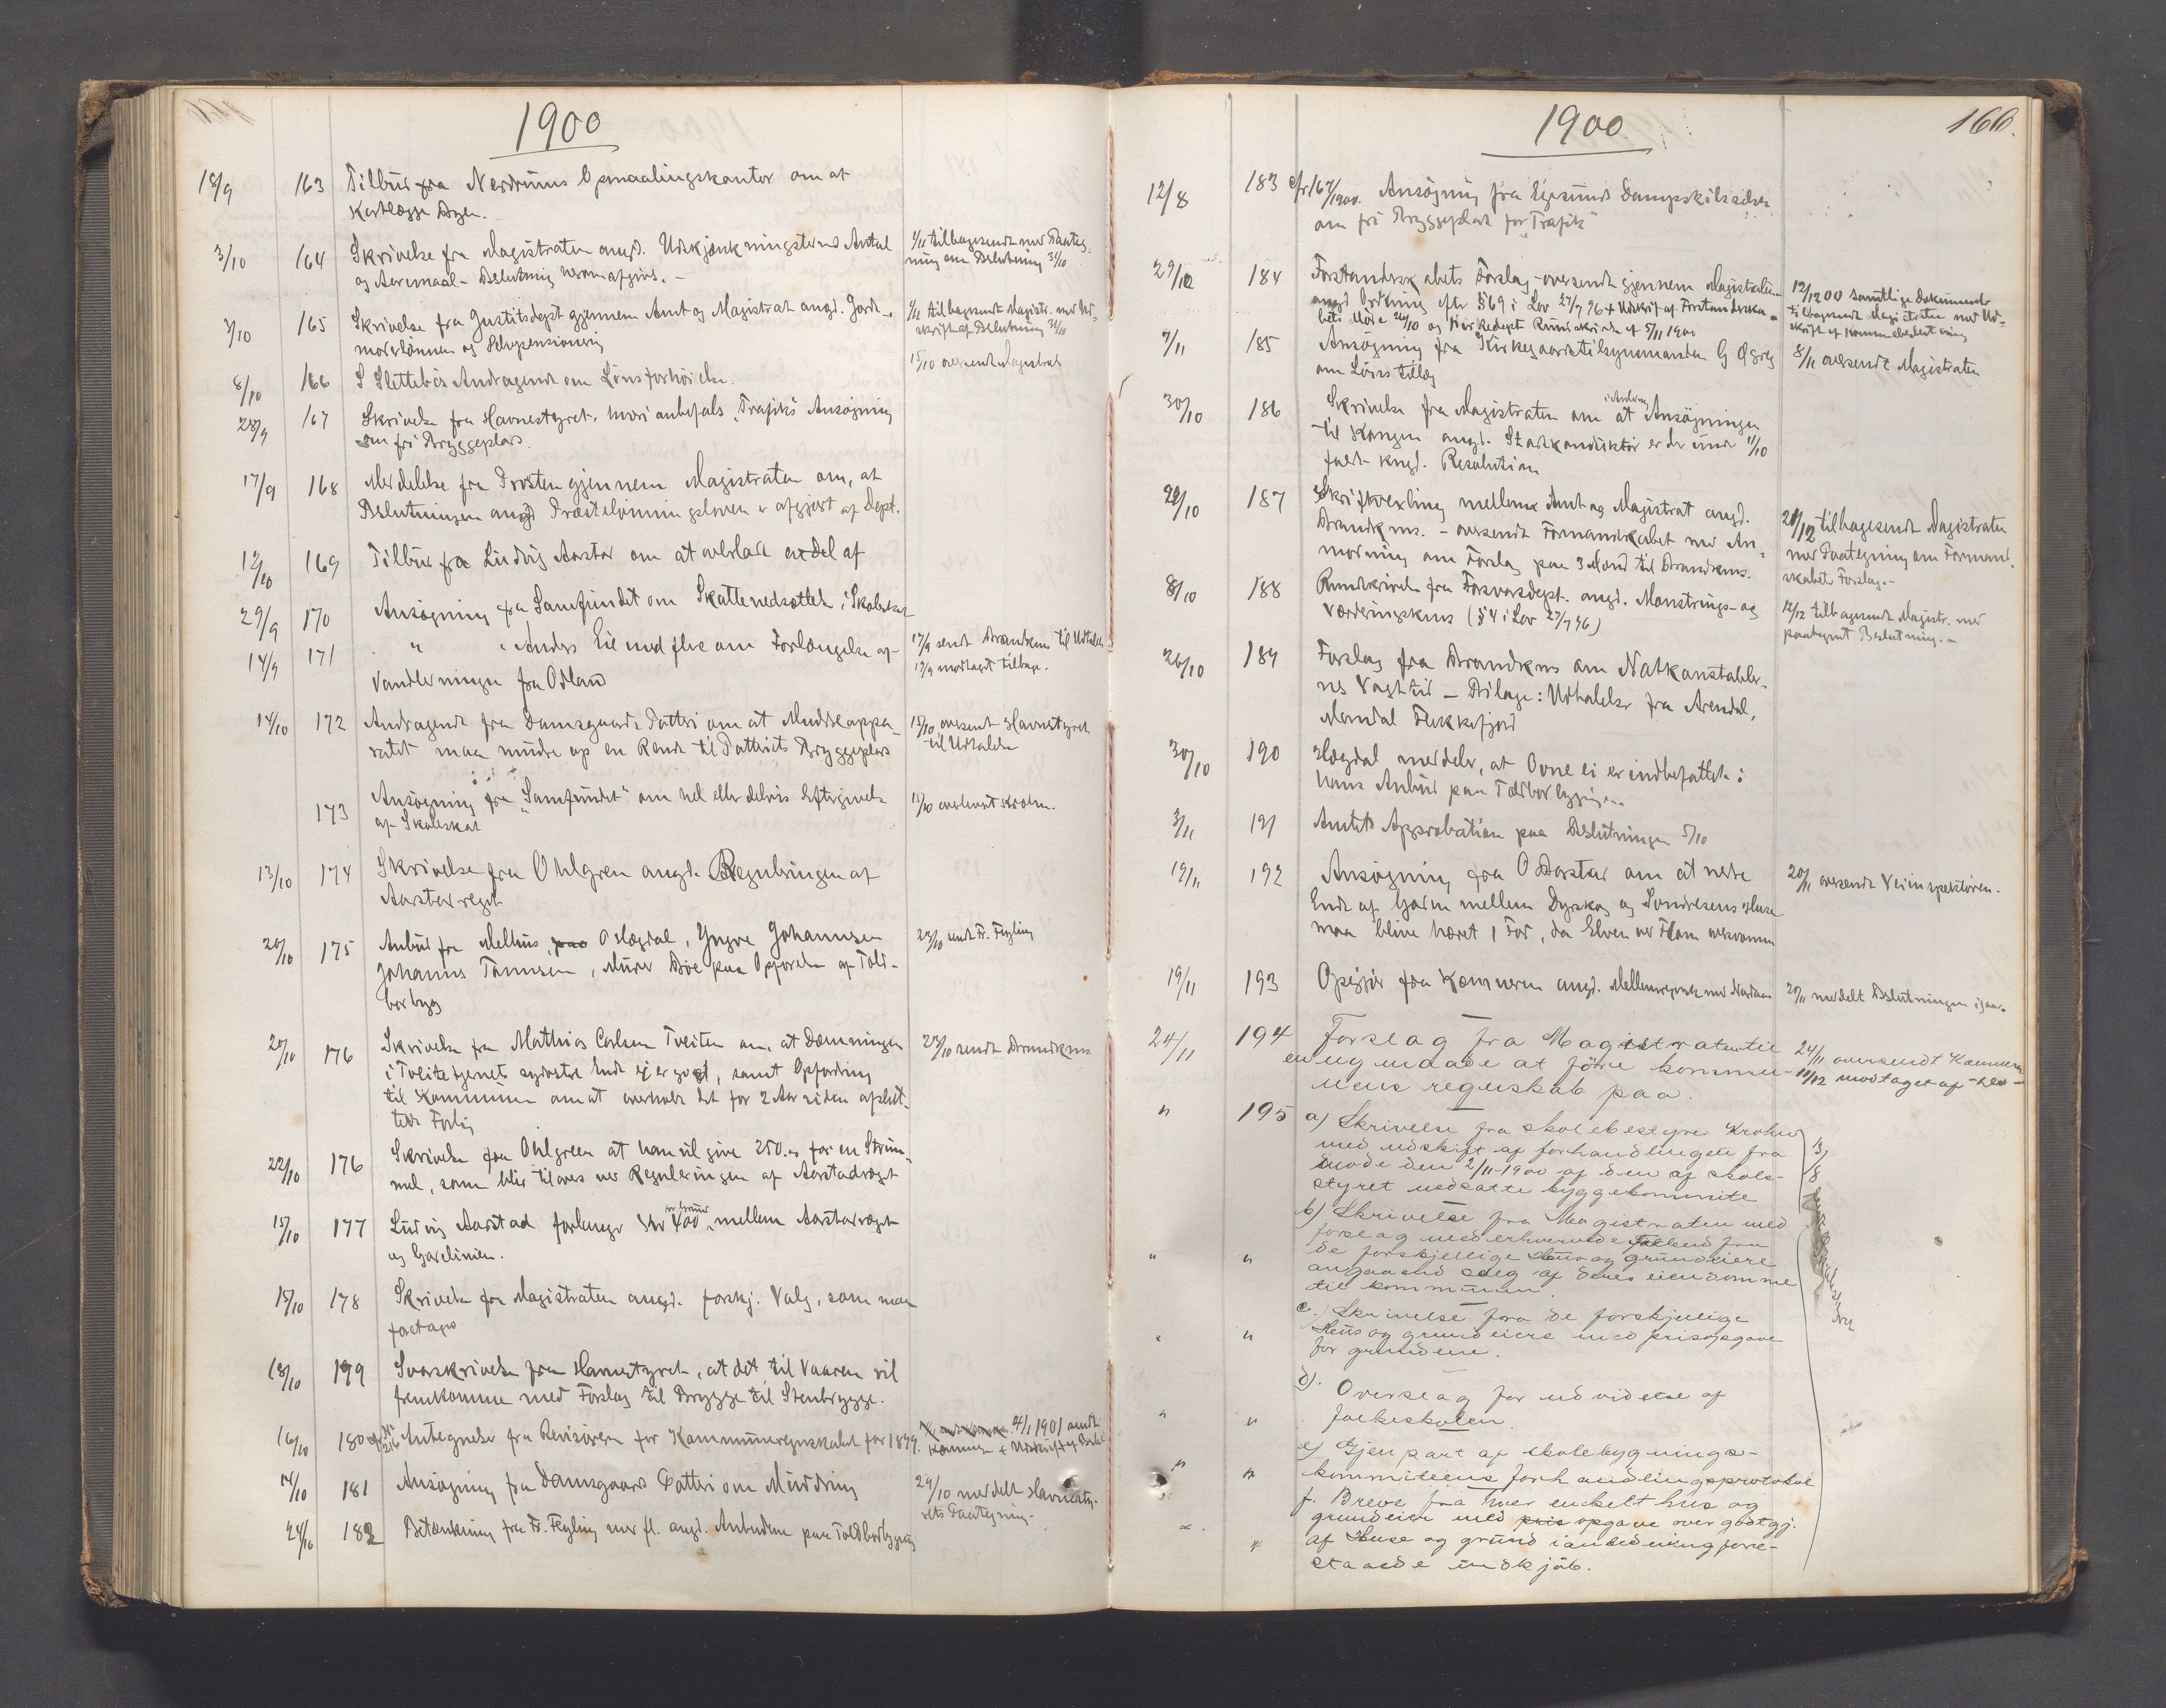 1900
18/9 163 Tilbud fra Nerdrums Opmaalingskontor om at
Kartlægge Byen.
3/10 164 Skrivelse fra Magistraten angd. Udskjænkningsstedernes Antal
og Aaremaal - Beslutning herom afgives. -
1/11 tilbagesendt med Paateg-
ning om Beslutning 31/10
3/10 165 Skrivelse fra Justitsdept gjennem Amt og Magistrat angd. Jord-
moderlönnen og Pensionering
1/11 tilbagesendt Magistr. med Ud-
skrift af Beslutning 31/10
8/10 166 S Slettebös Andragende om Lönsforhöielse.
15/10 oversendt Magistrat
28/9 167 Skrivelse fra Havnestyret, hvori anbefales "Trafiks" Ansögning
om fri Bryggeplads.
17/9 168 Meddelelse fra Provsten gjennem Magistraten om, at
Beslutningen angd Præstelönningsloven er afgjort af Dept.
12/10 169 Tilbud fra Ludvig Aarstad om at overlade en del af
29/9 170 Ansögning fra Samfundet om Skattenedsættelse i Skoleskat
14/9 171 " " Anders Eie med flere om Forlængelse af
Vandledningen fra Odland
17/9 sendt Brandkms til Udtalelse
17/9 modtaget tilbage.
14/10 172 Andragende fra Damsgaards Fatteri om at Mudderappa-
ratet maa mudre op en Rende til Fatteriets Bryggeplads
15/10 oversendt Havnestyret
til Udtalelse
173 Ansögning fra "Samfundet" om hel eller delvis Eftergivelse
af Skoleskat
11/10 overlevert Krohn.
13/10 174 Skrivelse fra Ohlgren angd. Reguleringen af
Aarstadveget
20/10 175 Anbud fra Melhus, O Hægdal, Yngve Johannsen
Johannes Tönnesen, Murer Böe paa Opförelse af Told-
bodbygg
22/10 sendt Fr. Feyling
20/10 176 Skrivelse fra Mathias Carlsen Tveiten om, at Dæmningen
i Tveitetjenets sydöstre Ende ej er god, samt Opfordring
til Kommunen om at overholde det for 2 Aar siden afslut-
tede Forlig
22/10 sendt Brandkms
22/10 176 Skrivelse fra Ohlgreen at han vil give 250.00 for en Strim-
mel, som blir tilovers ved Reguleringen af Aarstadvæget
15/10 177 Ludvig Aarstad forlanger Kr 400 for Grund mellem Aarstadvæget
og Gadelinien.
15/10 178 Skrivelse fra Magistraten angd. forskj. Valg, som maa
foretages
18/10 179 Svarskrivelse fra Havnestyret, at det til Vaaren vil
fremkomme med Forslag til Brygge til Stenbrygge.
16/10 180 Antegnelser fra Revisören for Kommuneregnskabet for 1899.
4/1 1901 sendt
14/10 181 Ansögning fra Damsgaards Fatteri om Muddring
29/10 meddelt Havnesty-
rets Paategning.
24/10 182 Betænkning fra Fr. Feyling med fl. angd. Anbudene paa Toldbodbygning
1900
166.
12/8 183 cfr 167/1900. Ansögning fra Egersunds Dampskibsselskab
om fri Bryggeplads for "Trafik"
29/10 184 Forstanderskabets Forslag, oversendt gjennem Magistraten
angd Ordning efter § 69 i Lov 27/7 96 + Udskrift af Forstanderska-
bets Möde 26/10 og Kirkedept Rundskrivelse af 5/11 1900
12/12 00 samtlige Dokumenter
tilbagesendt Magistraten med Ud-
skrift af Kommunebeslutning
7/11 185 Ansögning fra Kirkegaardstilsynsmanden G Ögrey
om Lönstillæg
8/11 oversendt Magistraten
30/10 186 Skrivelse fra Magistraten om at i Anledning Ansögningen
til Kongen angd. Stadskonduktör er der under 11/10
faldt kngl. Resolution
22/10 187 Skriftveksling mellem Amt og Magistrat angd.
Brandkms. - oversendt Formandskabet med An-
modning om Forslag paa 3 Mænd til Brandkms.
21/12 tilbagesendt Magistraten
med Paategning om Formand-
skabets Forslag. -
8/10 188 Rundskrivelse fra Forsvarsdept. angd. Mönstrings- og
Værderingskms (§ 4 i Lov 27/7 96)
12/12 tilbagesendt Magistr. med
paategnet Beslutning. -
26/10 189 Forslag fra Brandkms om Natkonstabler-
nes Vagttid - Bilage: Udtalelser fra Arendal,
Mandal Flekkefjord
30/10 190 Hægdal meddeler, at Ovne ei er indbefattet i
hans Anbud paa Toldbodbygningen.
3/11 191 Amtets Approbation paa Beslutningen 5/10
19/11 192 Ansögning fra O Aarstad om at nedre
Ende af Gaden mellem Dyrskog og Sondresens Huse
maa blive hævet 1 Fod, da Elven ved Flom oversvömmer
20/11 oversendt Veiinspektören.
19/11 193 Opgjör fra Kæmneren angd. Mellemregnsk med
20/11 meddelt Beslutningen igaar.
24/11 194 Forslag fra Magistraten til
en ny maade at före kommu-
nens regnskab paa.
24/11 oversendt Kæmneren
11/12 modtaget af -hr -
" 195 a) Skrivelse fra skolebestyrer Krohn
med udskrift af forhandlingen fra
möde den 2/11 1900 af den af skole-
styret nedsatte byggekommite
b) Skrivelse fra Magistraten med
forslag med erhvervede Tilbud fra
" " de forskjellige Hus og grundeiere
angaaende salg af deres eiendomme
til kommunen.
c.) Skrivelse fra de forskjellige
" " Hus og grundeiere med prisopgave
for grundene.
d). Overslag for udvidelse af
" " folkeskolen.
e) Gjenpart af skolebygnings-
" " kommiteens forhandlingsprotokol
f. Breve fra hver enkelt hus og
grundeier med pris opgave over godtgj.
" " af Huse og grund i anledning fore-
staaede indkjöb.